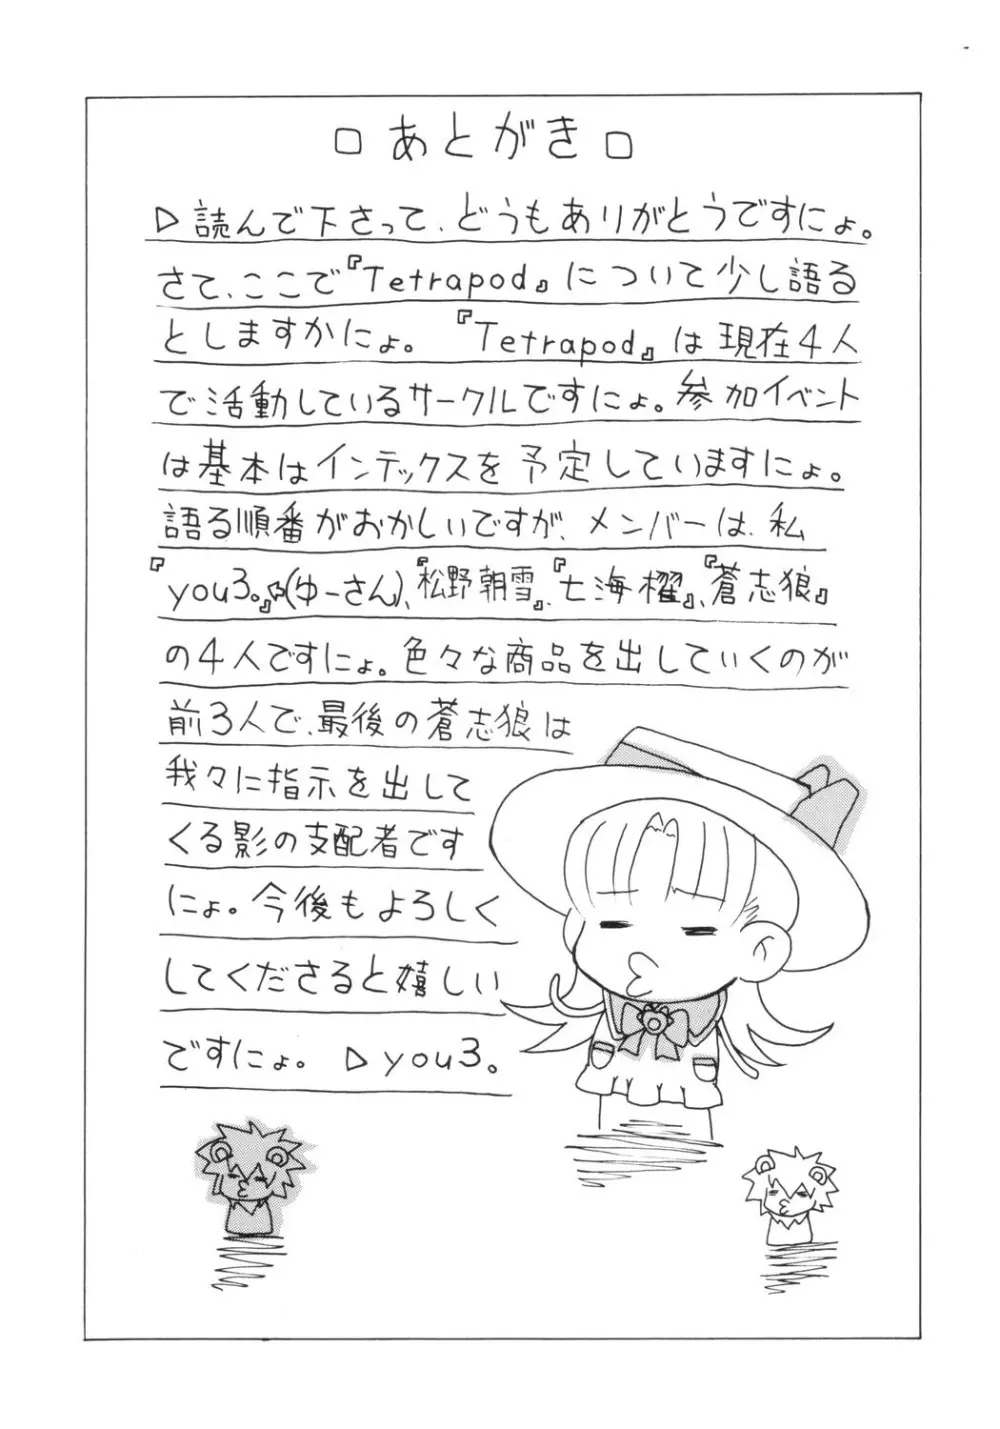 □ あとがき □
▷読んで下さって、どうもありがとうですにょ。
さて、ここで『Tetrapod』について少し語る
としますかにょ。『Tetrapod』は現在4人
で活動しているサークルですにょ。参加イベント
は基本はインテックスを予定していますにょ。
語る順番がおかしいですが、メンバーは、私
『you3。』(ゆーさん)、『松野朝雪』、『七海櫂』、『蒼志狼』
の4人ですにょ。色々な商品を出していくのが
前3人で、最後の蒼志狼は
我々に指示を出して
くる影の支配者です
にょ。今後もよろしく
してくださると嬉しい
ですにょ。 ▷you3。